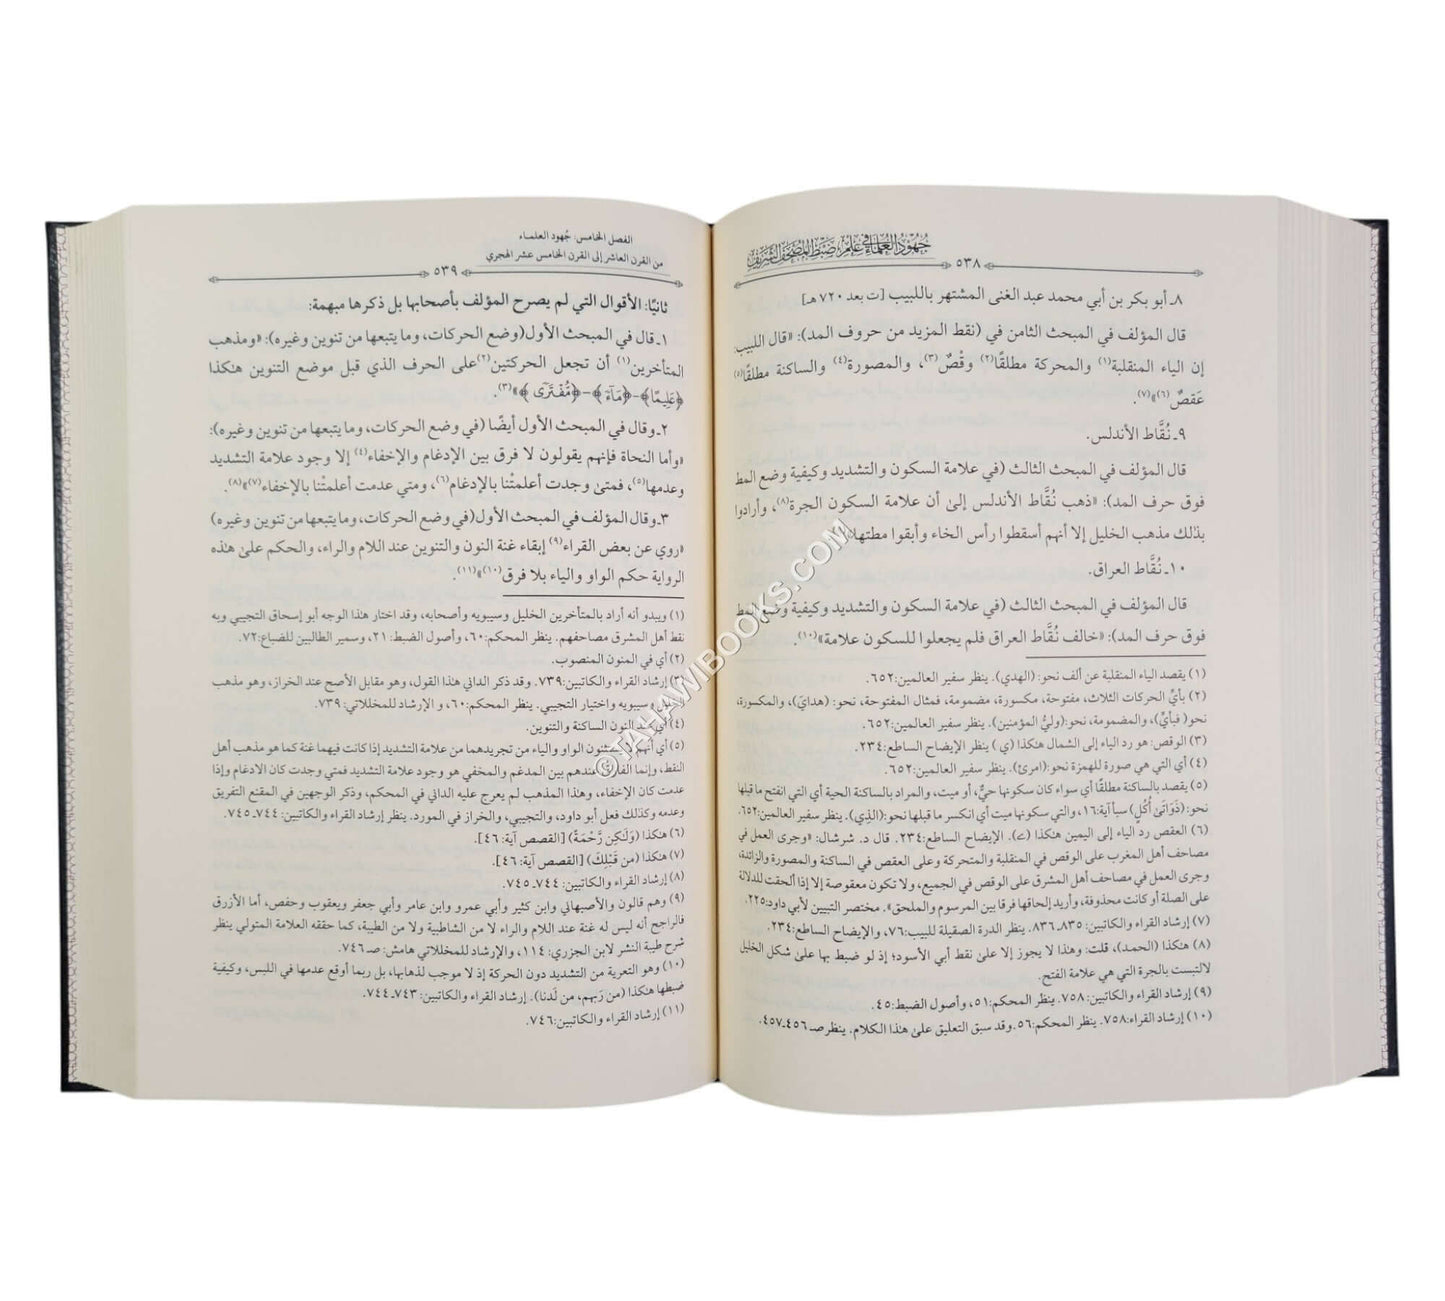 جُهُودُ العُلَمَاءِ فِي عِلْمِ ضَبْطِ المُصْحَفِ الشَّرِيفِ
٥٣٨
٨ـ أبو بكر بن أبي محمد عبد الغنى المشتهر باللبيب [ت بعد ٧٢٠ هـ]
قال المؤلف في المبحث الثامن في (نقط المزيد من حروف المد): «قال اللبيب:
إن الياء المنقلبة(١) والمحركة مطلقًا(٢) وقْصٌ(٣)، والمصورة(٤) والساكنة مطلقًا(٥)
عَقصٌ(٦)»(٧).
٩ـ نُقَّاط الأندلس.
قال المؤلف في المبحث الثالث (في علامة السكون والتشديد وكيفية وضع المط
فوق حرف المد): «ذهب نُقَّاط الأندلس إلىٰ أن علامة السكون الجرة(٨)، وأرادوا
بذٰلك مذهب الخليل إلا أنهم أسقطوا رأس الخاء وأبقوا مطتها»(٩).
١٠ـ نُقَّاط العراق.
قال المؤلف في المبحث الثالث (في علامة السكون والتشديد وكيفية وضع المط
فوق حرف المد): «خالف نُقَّاط العراق فلم يجعلوا للسكون علامة»(١٠).
(١) يقصد الياء المنقلبة عن ألف نحو: (الهدي). ينظر سفير العالمين:٦٥٢.
(٢) بأيِّ الحركات الثلاث، مفتوحة، مكسورة، مضمومة، فمثال المفتوحة، نحو: (هدايَ)، والمكسورة،
نحو( فبأيِّ)، والمضمومة، نحو:(وليُّ المؤمنين). ينظر سفير العالمين:٦٥٢.
(٣) الوقص: هو رد الياء إلى الشمال هٰكذا (ي ) ينظر الإيضاح الساطع:٢٣٤.
(٤) أي التي هي صورة للهمزة نحو:(امرئ). ينظر سفير العالمين:٦٥٢.
(٥) يقصد بالساكنة مطلقًا أي سواء كان سكونها حيٌّ، أو ميت، والمراد بالساكنة الحية أي التي انفتح ما قبلها
نحو:(ذَوَاتَىْ أُكُلٍ) سبأ آية:١٦، والتي سكونها ميت أي انكسر ما قبلها نحو:(الذِي). ينظر سفير العالمين:٦٥٢.
(٦) العقص رد الياء إلى اليمين هٰكذا (ے). الإيضاح الساطع:٢٣٤. قال د. شرشال: «وجرى العمل في
مصاحف أهل المغرب على الوقص في المنقلبة والمتحركة وعلى العقص في الساكنة والمصورة والزائدة،
وجرى العمل في مصاحف أهل المشرق على الوقص في الجميع، ولا تكون معقوصة إلا إذا ألحقت للدلالة
على الصلة أو كانت محذوفة، وأريد إلحاقها فرقا بين المرسوم والملحق». مختصر التبيين لأبي داود:٢٢٥.
(٧) إرشاد القراء والكاتبين: ٨٣٥ـ٨٣٦. ينظر الدرة الصقيلة للبيب:٧٦، والإيضاح الساطع:٢٣٤.
(٨) هٰكذا (الحمد)، قلت: وهٰذا لا يجوز إلا علىٰ نقط أبي الأسود؛ إذ لو ضبط بها علىٰ شكل الخليل
لالتبست بالجرة التي هي علامة الفتح.
(٩) إرشاد القراء والكاتبين: ٧٥٨. ينظر المحكم:٥١، وأصول الضبط:٤٥.
(١٠) إرشاد القراء:٧٥٨. ينظر المحكم:٥٦.وقد سبق التعليق علىٰ هٰذا الكلام. ينظر صـ ٤٥٦ـ٤٥٧.
الفصل الخامس: جُهود العلماء
من القرن العاشر إلى القرن الخامس عشر الهجري
٥٣٩
ثانيًا: الأقوال التي لم يصرح المؤلف بأصحابها بل ذكرها مبهمة:
١ـ قال في المبحث الأول(وضع الحركات، وما يتبعها من تنوين وغيره): «ومذهب
المتأخرين(١) أن تجعل الحركتين(٢)على الحرف الذي قبل موضع التنوين هٰكذا
﴿عَلِيمًا﴾-﴿مَآءً﴾-﴿مُّفْتَرًى﴾»(٣).
٢ـ وقال في المبحث الأول أيضًا (في وضع الحركات، وما يتبعها من تنوين وغيره):
«وأما النحاة فإنهم يقولون لا فرق بين الإدغام والإخفاء(٤) إلا وجود علامة التشديد
وعدمها(٥)، فمتىٰ وجدت أعلمتْنا بالإدغام(٦)، ومتي عدمت أعلمتْنا بالإخفاء(٧)»(٨).
٣ـ وقال المؤلف في المبحث الأول(في وضع الحركات، وما يتبعها من تنوين وغيره)
«روي عن بعض القراء(٩) إبقاء غنة النون والتنوين عند اللام والراء، والحكم علىٰ هٰذه
الرواية حكم الواو والياء بلا فرق(١٠)»(١١).
(١) ويبدو أنه أراد بالمتأخرين الخليل وسيبويه وأصحابه، وقد اختار هٰذا الوجه أبو إسحاق التجيبي وبه
نقط أهل المشرق مصاحفهم. ينظر المحكم:٦٠، وأصول الضبط:٢١، وسمير الطالبين للضباع:٧٢.
(٢) أي في المنون المنصوب.
(٣) إرشاد القراء والكاتبين:٧٣٩. وقد ذكر الداني هٰذا القول، وهو مقابل الأصح عند الخراز، وهو مذهب
وسيبويه واختيار التجيبي. ينظر المحكم:٦٠، و الإرشاد للمخللاتي:٧٣٩.
(٤) أي عند النون الساكنة والتنوين.
(٥) أي أنهم يستثنون الواو والياء من تجريدهما من علامة التشديد إذا كانت فيهما غنة كما هو مذهب أهل
النقط، وإنما الفارق عندهم بين المدغم والمخفي هو وجود علامة التشديد فمتي وجدت كان الادغام وإذا
عدمت كان الإخفاء، وهٰذا المذهب لم يعرج عليه الداني في المحكم، وذكر الوجهين في المقنع التفريق
وعدمه وكذلك فعل أبو داود، والتجيبي، والخراز في المورد. ينظر إرشاد القراء والكاتبين: ٧٤٤ـ٧٤٥.
(٦) هٰكذا (وَلَٰكِن رَّحْمَةً) [القصص آية: ٤٦].
(٧) هٰكذا (من قَبْلِكَ) [القصص آية: ٤٦].
(٨) إرشاد القراء والكاتبين: ٧٤٤ـ٧٤٥.
(٩) وهم قالون والأصبهاني وابن كثير وأبي عمرو وابن عامر وأبي جعفر ويعقوب وحفص، أما الأزرق
فالراجح أنه ليس له غنة عند اللام والراء لا من الشاطبية ولا من الطيبة، كما حققه العلامة المتولي ينظر
شرح طيبة النشر لابن الجزري: ١١٤، والإرشاد للمخللاتي هامش: صـ ٧٤٦.
(١٠) وهو التعرية من التشديد دون الحركة إذ لا موجب لذهابها، بل ربما أوقع عدمها في اللبس، وكيفية
ضبطها هٰكذا (من رَبهم، من لَدنا). إرشاد القراء والكاتبين: ٧٤٣ـ٧٤٤.
(١١) إرشاد القراء والكاتبين:٧٤٦.
©TAHAWIBOOKS.COM